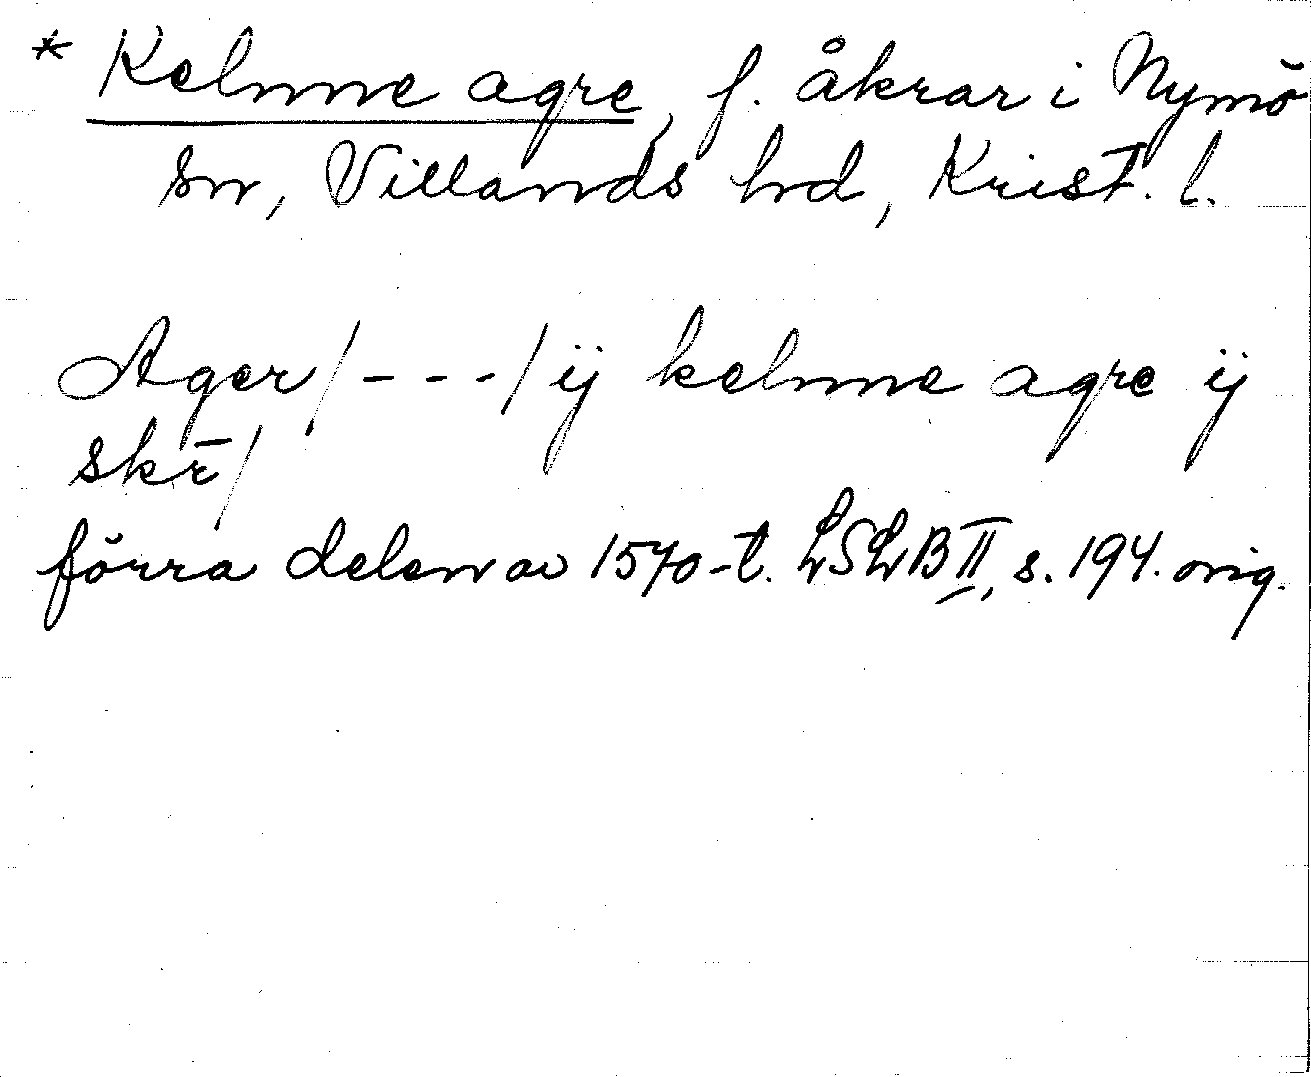 * Kelnne agre, f. åkrar i Nymö
sn, Villands hd, Krist. l.
Ager/---/ ij kelnne agre ij
skr̄/
förra delen av 1570-t. LSLB II, s. 194. orig.